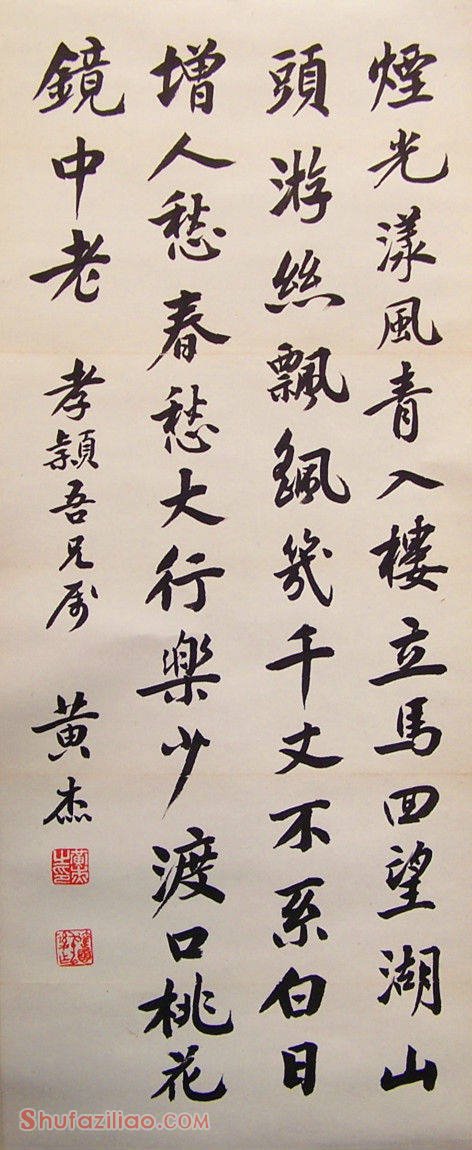 煙光漾風青入樓立馬回望湖山
頭游絲飄颻幾千丈不系白日
增人愁春愁大行樂少渡口桃花
鏡中老 孝穎吾兄属 黃杰
黃杰之印
SHUFAZILIAO.COM